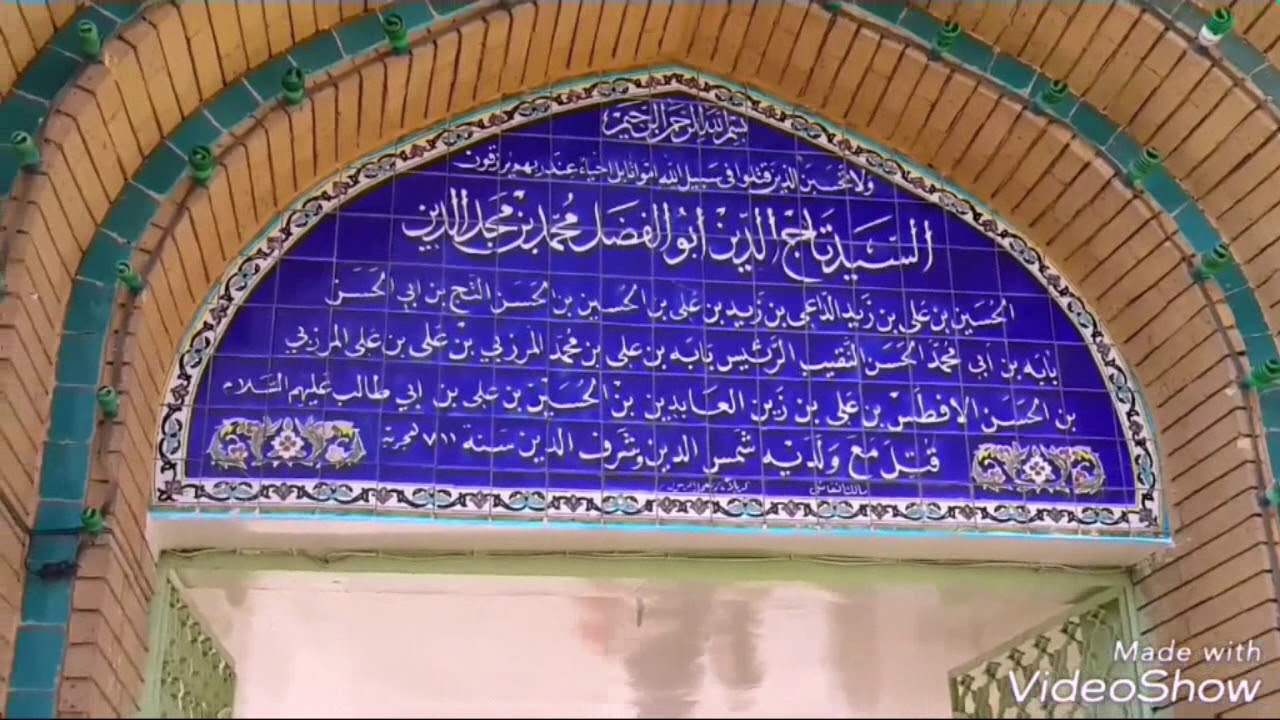 بسم الله الرحمن الرحيم
ولا تحسبن الذين قتلوا في سبيل الله امواتا بل احياء عند ربهم يرزقون
السيد تاج الدين أبو الفضل محمد بن مجد الدين
الحسين بن علي بن زيد الداعي بن زيد بن علي بن الحسين بن الحسن التج بن ابي الحسن
بابه بن أبي محمد الحسن النقيب الرئيس بابه بن علي بن محمد المرزبي بن علي بن علي المرزبي
بن الحسن الافطس بن علي بن زين العابدين بن الحسين بن علي بن ابي طالب عليهم السلام
قتل مع ولديه شمس الدين وشرف الدين سنة ٧١١ هجرية
كربلاء
Made with
VideoShow